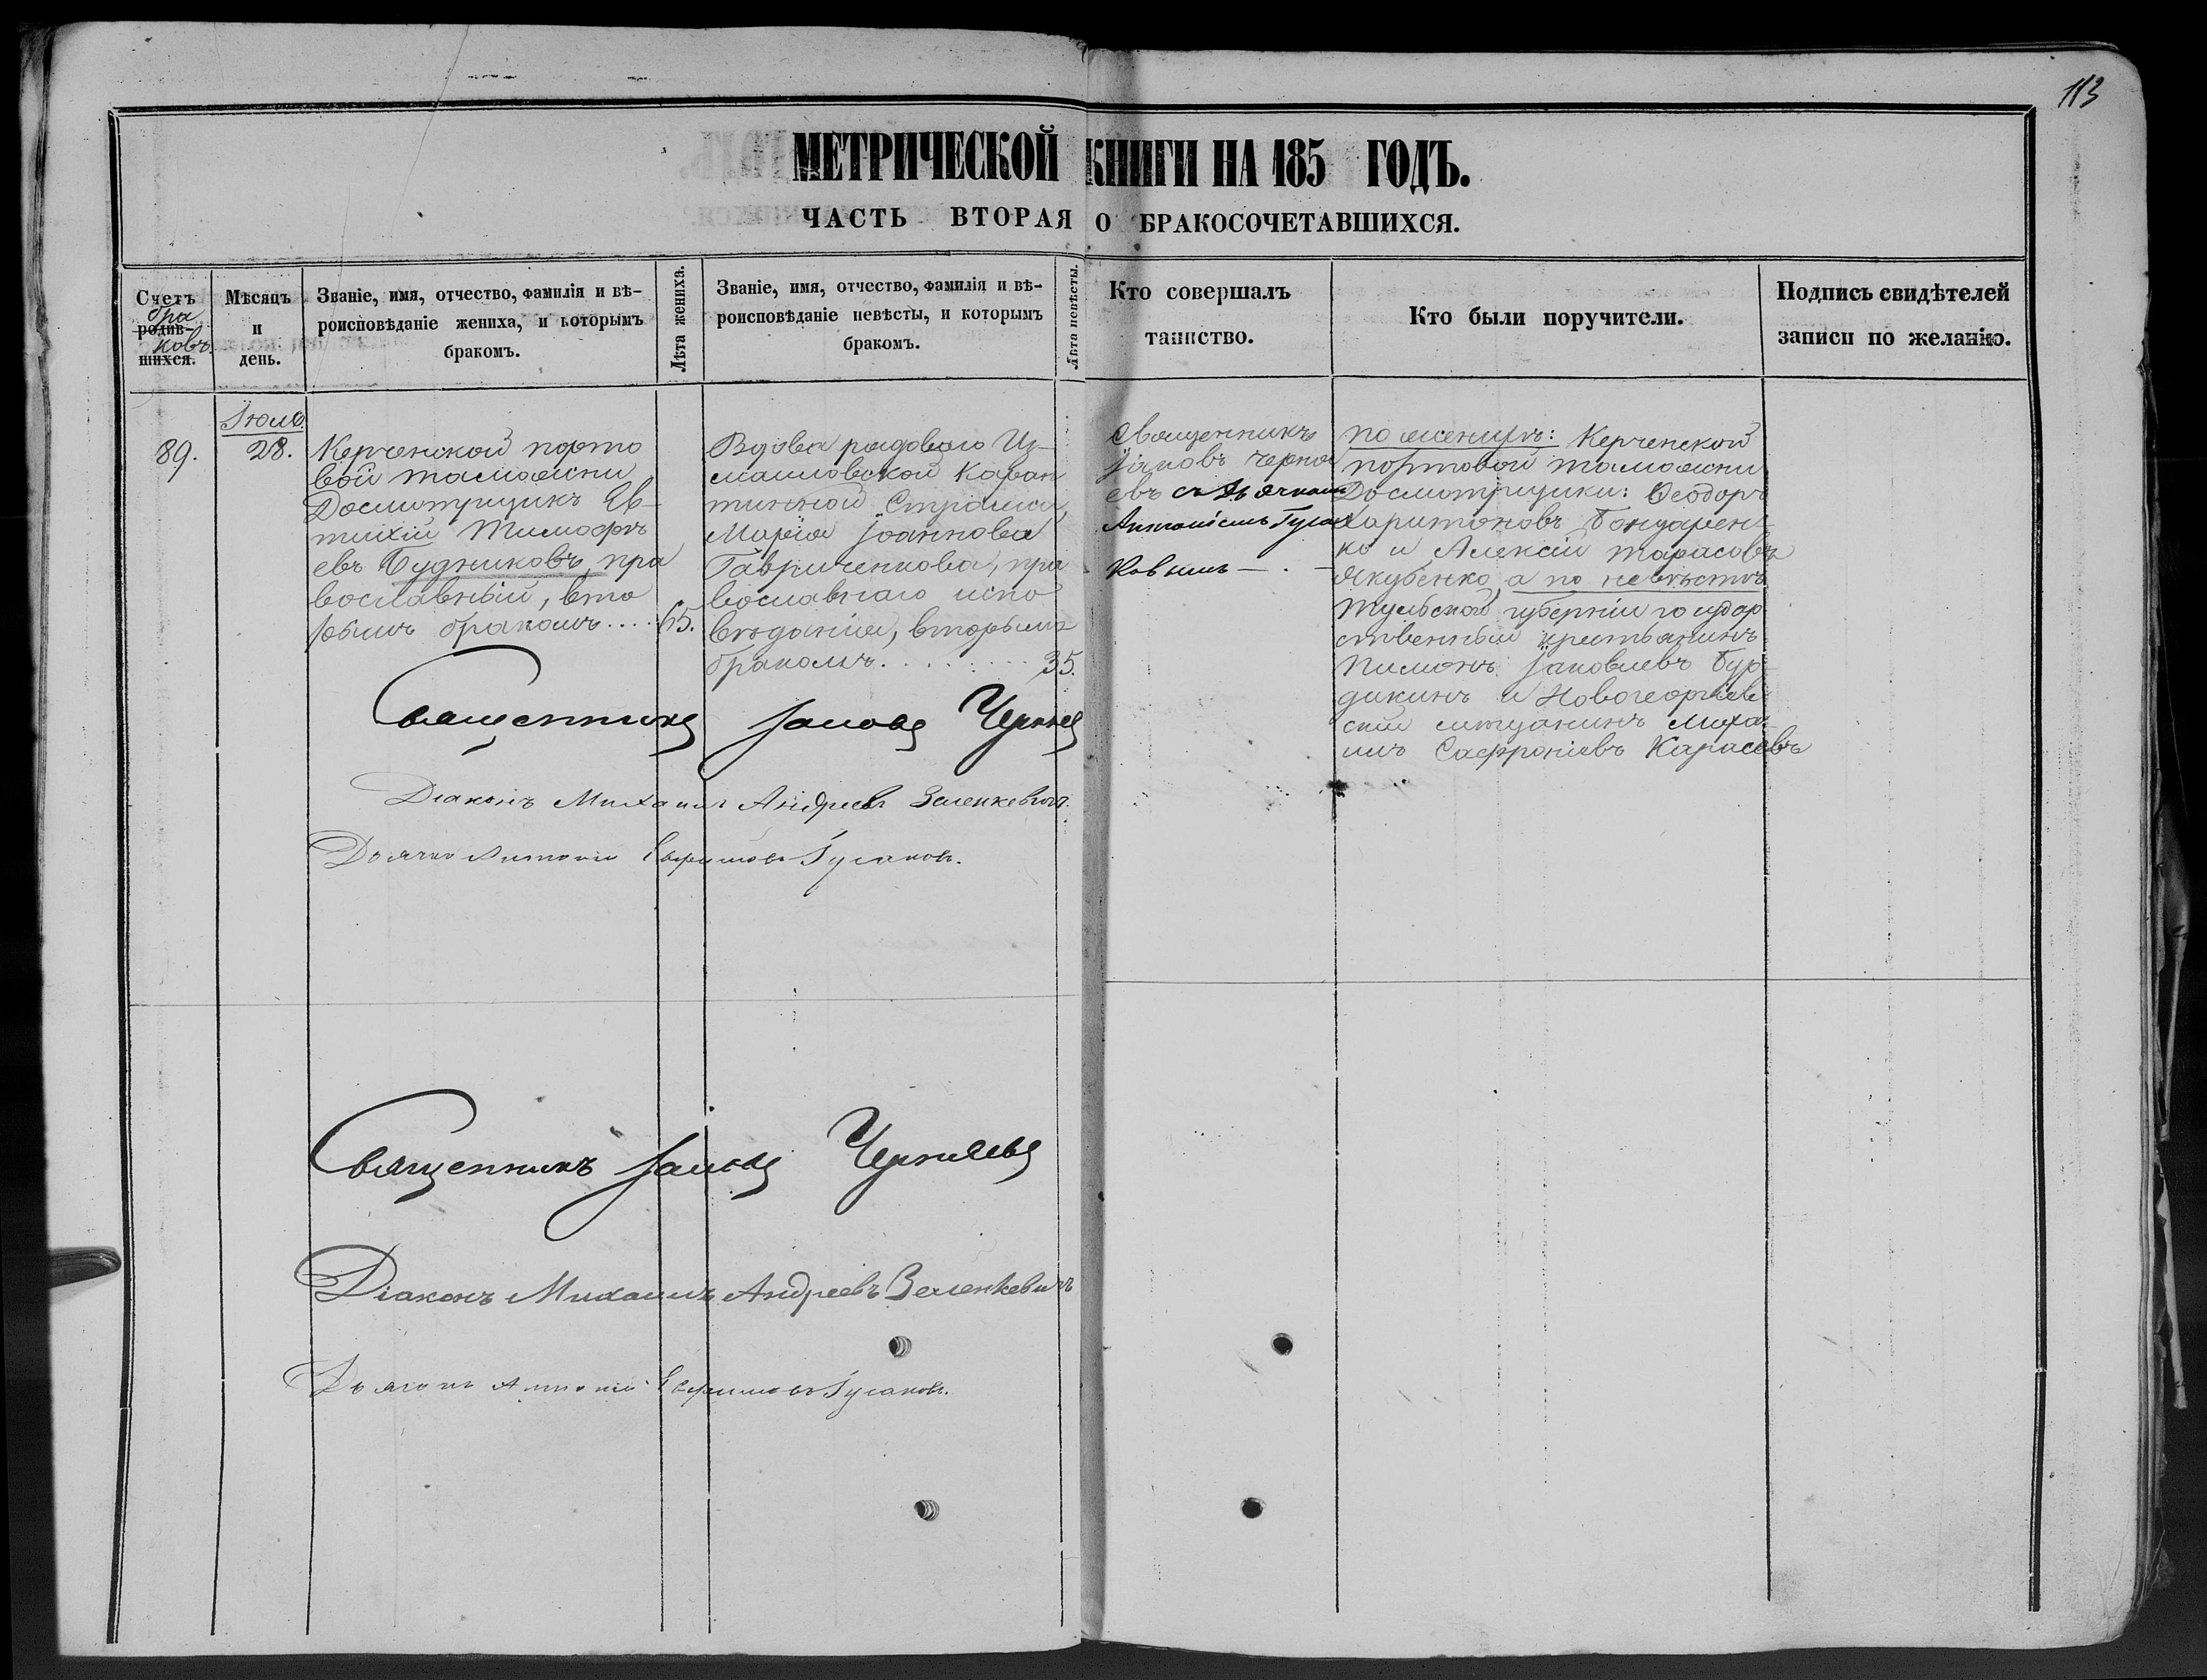 113
МЕТРИЧЕСКОЙ КНИГИ НА 185 ГОДЪ.
ЧАСТЬ ВТОРАЯ О БРАКОСОЧЕТАВШИХСЯ.
Счетъ
бра
родив-
ковъ.
шихся.
Мѣсяцъ
и
день.
Званіе, имя, отчество, фамилія и вѣ-
роисповѣданіе жениха, и которымъ
бракомъ.
Лѣта жениха.
Званіе, имя, отчество, фамилія и вѣ-
роисповѣданіе невѣсты, и которымъ
бракомъ.
Лѣта невѣсты.
Кто совершалъ
таинство.
Кто были поручители.
Подпись свидѣтелей
записи по желанію.
89.
Іюль
28.
Керченской порто
вой таможни
Досмотрщикъ Ев-
тихій Тимофѣ
евъ Будниковъ, пра
вославный, вто
рымъ бракомъ....
65.
Вдова рядоваго Из-
маиловской Каран
тинной Стражи,
Марія Іоаннова
Гавриченкова, пра
вославнаго испо
вѣданія, вторымъ
бракомъ.........
35.
Священникъ
Іаковъ Черня
евъ съ Дьячкомъ
Антоніемъ Гуса
ковымъ —.—
по женихѣ: Керченской
портовой таможни
Досмотрщики: Ѳеодоръ
Харитоновъ Бондарен
ко и Алексій Тарасовъ
Якубенко, а по невѣстѣ
Тульской губерніи государ
ственный крестьянинъ
Пимонъ Іаковлевъ Бур
дикинъ и Новогеоргіев
скій мѣщанинъ Миха
илъ Сафроніевъ Карасевъ
Священникъ Іаковъ Черняев
Діаконъ Михаилъ Андреевъ Зеленкевичъ.
Дьячкъ Антоній Ефимовъ Гусаковъ.
Священникъ Іаковъ Черняевъ
Діаконъ Михаилъ Андреевъ Зеленкевичъ
Дьячокъ Антоній Ефимовъ Гусаковъ.